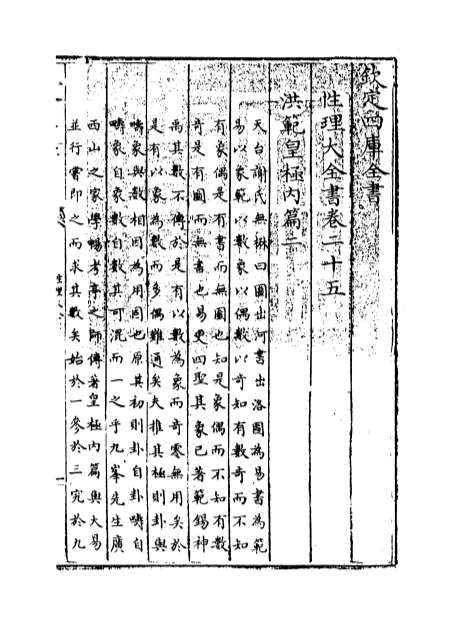 欽定四庫全書
性理大全書卷二十五
洪範皇極內篇二
天台謝氏無楙曰圖出河書出洛圖為易書為範
易以象範以數象以偶數以奇知有數奇而不知
有象偶是有書而無圖也知是象偶而不知有數
奇是有圖而無書也易更四聖其象已著範錫神
禹其數不傳於是有以數為象而奇零無用矣於
是有以象為數而多偶難通矣夫推其極則卦與
疇象與數相因為用固也原其初則卦自卦疇自
疇象自象數自數其可混而一之乎九峯先生廣
西山之家學暢考亭之師傳著皇極內篇與大易
並行嘗即之而求其數矣始於一參於三究於九